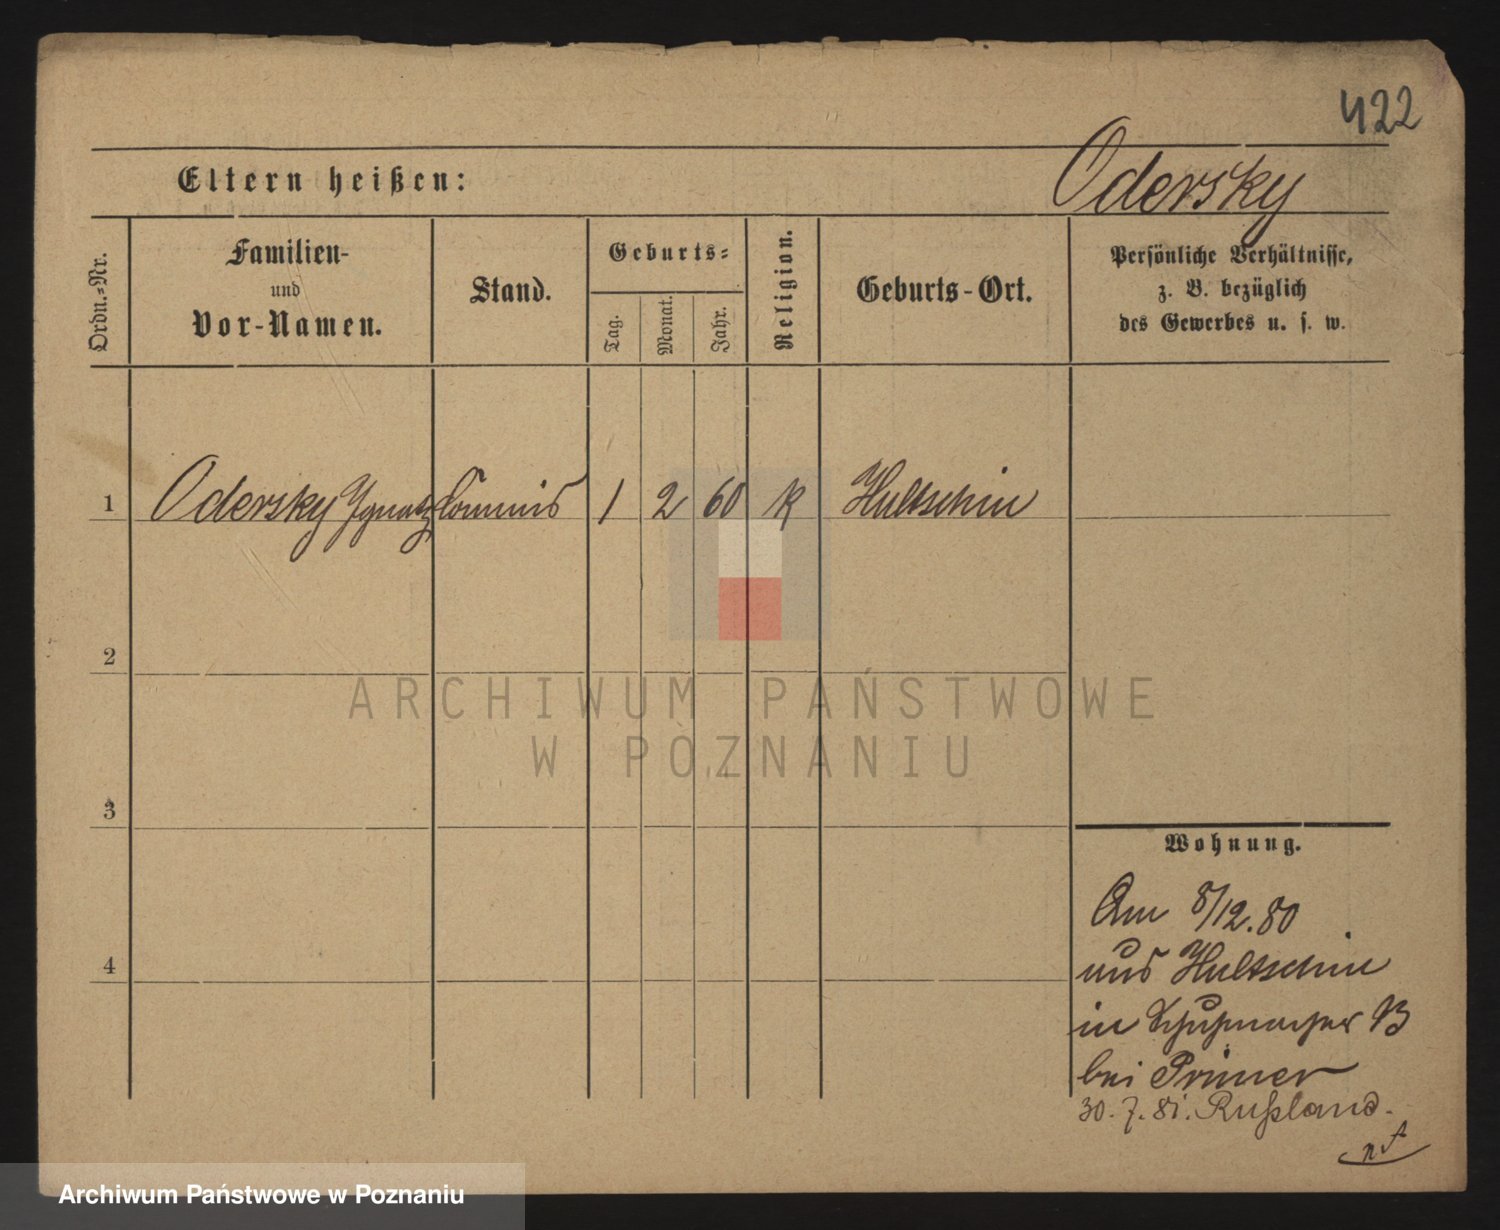 422
Eltern heißen: Odersky
Ordn.-Nr.
Familien-
und
Vor-Namen.
Stand.
Geburts-
Tag.
Monat.
Jahr.
Religion.
Geburts-Ort.
Persönliche Verhältnisse,
z. B. bezüglich
des Gewerbes u. s. w.
1 Odersky Ygnatz Commis 1 2 60 k Hultschin
2
3
4
Wohnung.
Am 8/12.80
aus Hultschin
in Schuhmacher 13
bei
30.7.81. Rußland.
ARCHIWUM PAŃSTWOWE
W POZNANIU
Archiwum Państwowe w Poznaniu